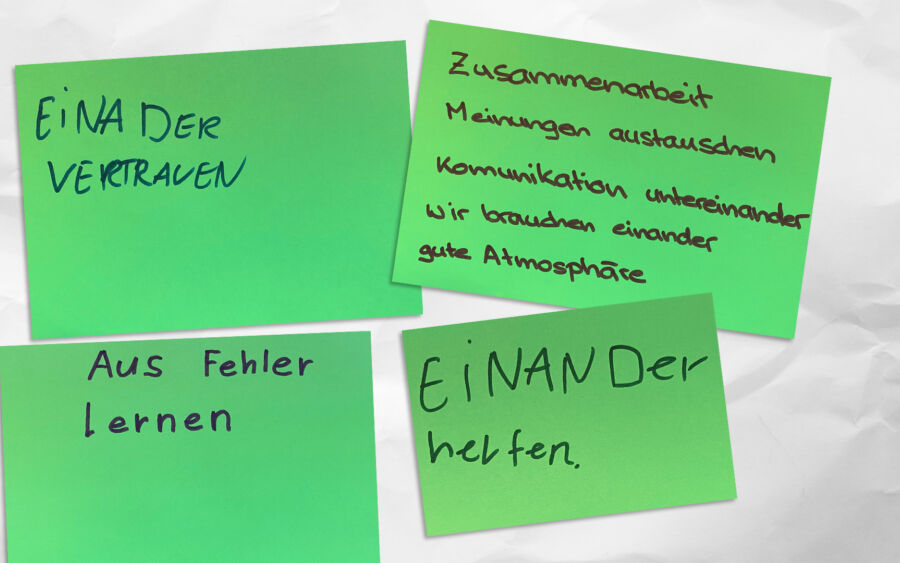 EiNA DER
VERTRAUEN
Zusammenarbeit
Meinungen austauschen
Komunikation untereinander
wir brauchen einander
gute Atmosphäre
Aus Fehler
lernen
EiNANDer
helfen.